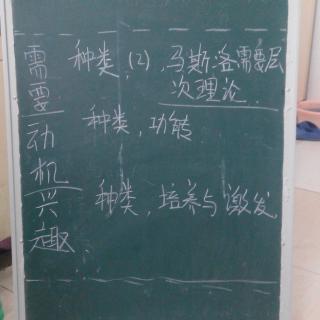 需要 种类,(2),马斯洛需要层
次理论.
动机 种类,功能
兴趣 种类,培养与激发.